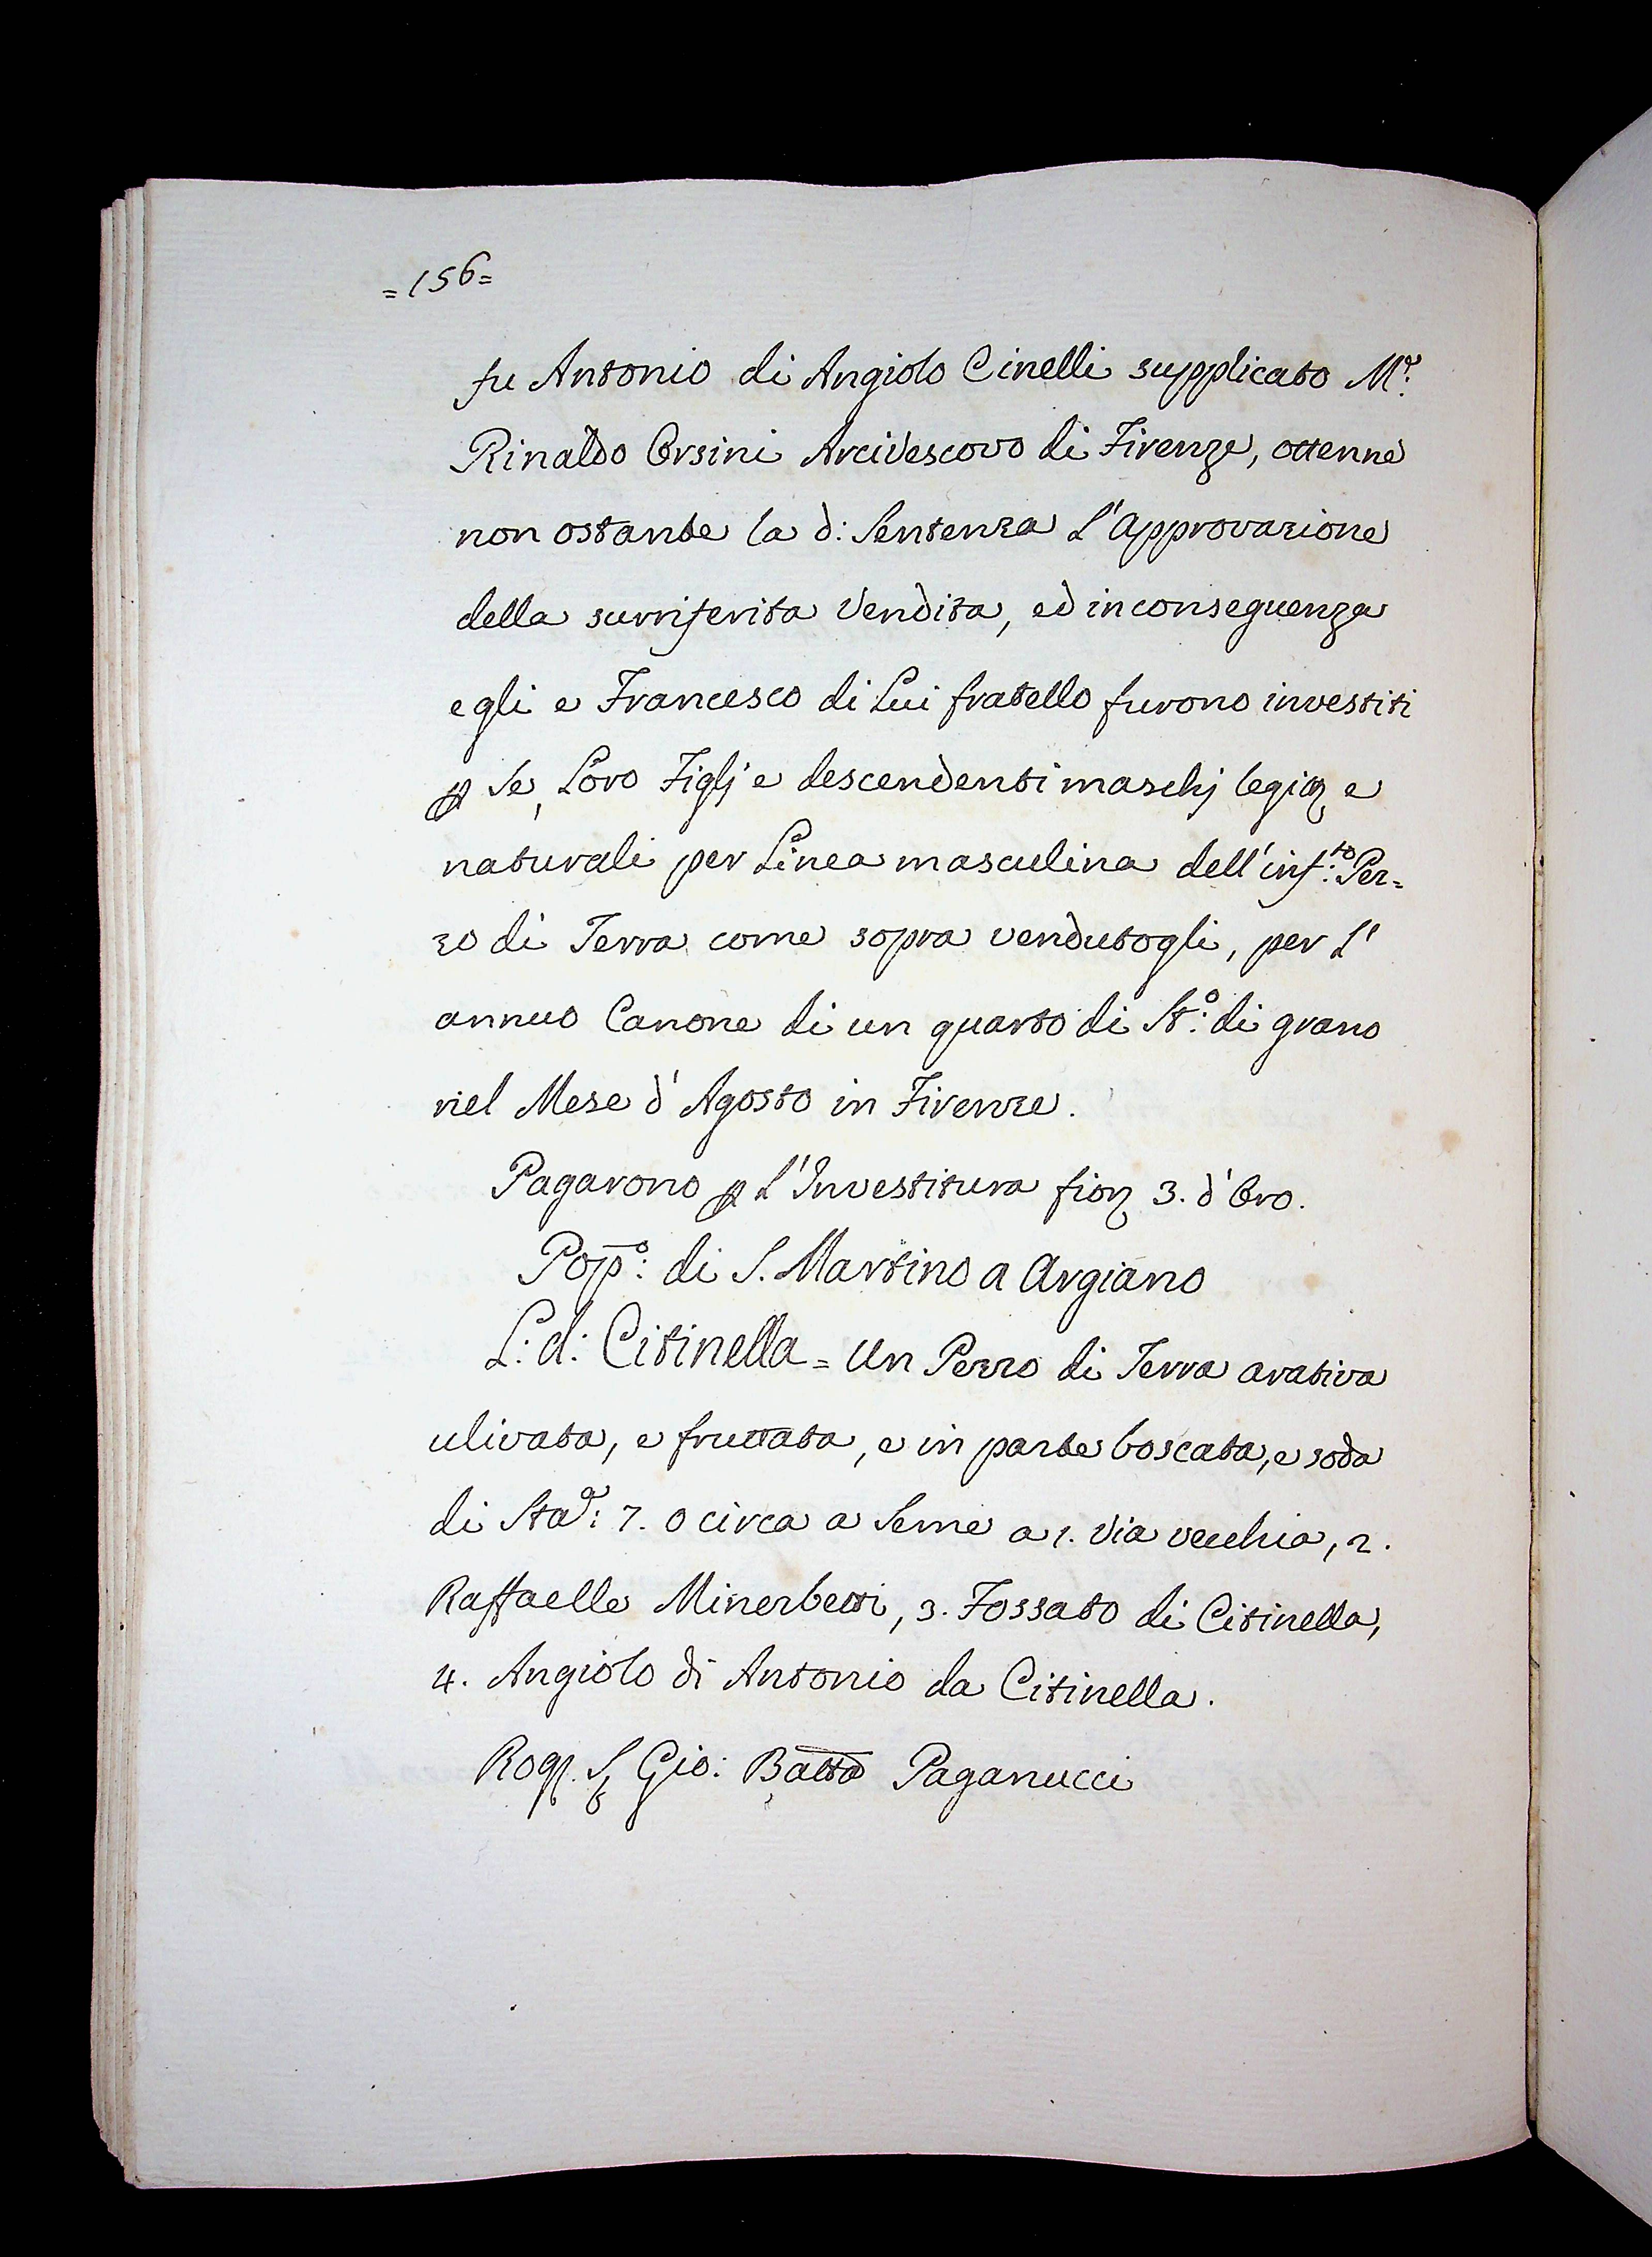 =156=
fu Antonio di Angiolo Cinelli supplicato Mr:
Rinaldo Orsini Arcivescovo di Firenze, ottenne
non ostante la d: Sentenza l'Approvazione
della surriferita Vendita, ed in conseguenza
egli e Francesco di Lui fratello furono investiti
p Se, Loro Figlj e descendenti maschj legiq e
naturali per Linea masculina dell'inf:to Pez=
zo di Terra come sopra vendutogli, per l'
annuo Canone di un quarto di St:o di grano
nel Mese d'Agosto in Firenze.
Pagarono p l'Investitura fior 3. d'Oro.
Pop:o di S. Martino a Argiano
L: d: Citinella = Un Pezzo di Terra arativa
ulivata, e fruttata, e in parte boscata, e soda
di Sta:a 7. o circa a Seme a 1. Via vecchia, 2.
Raffaelle Minerbetti, 3. Fossato di Citinella,
4. Angiolo di Antonio da Citinella.
Rog. S Gio: Batta Paganucci